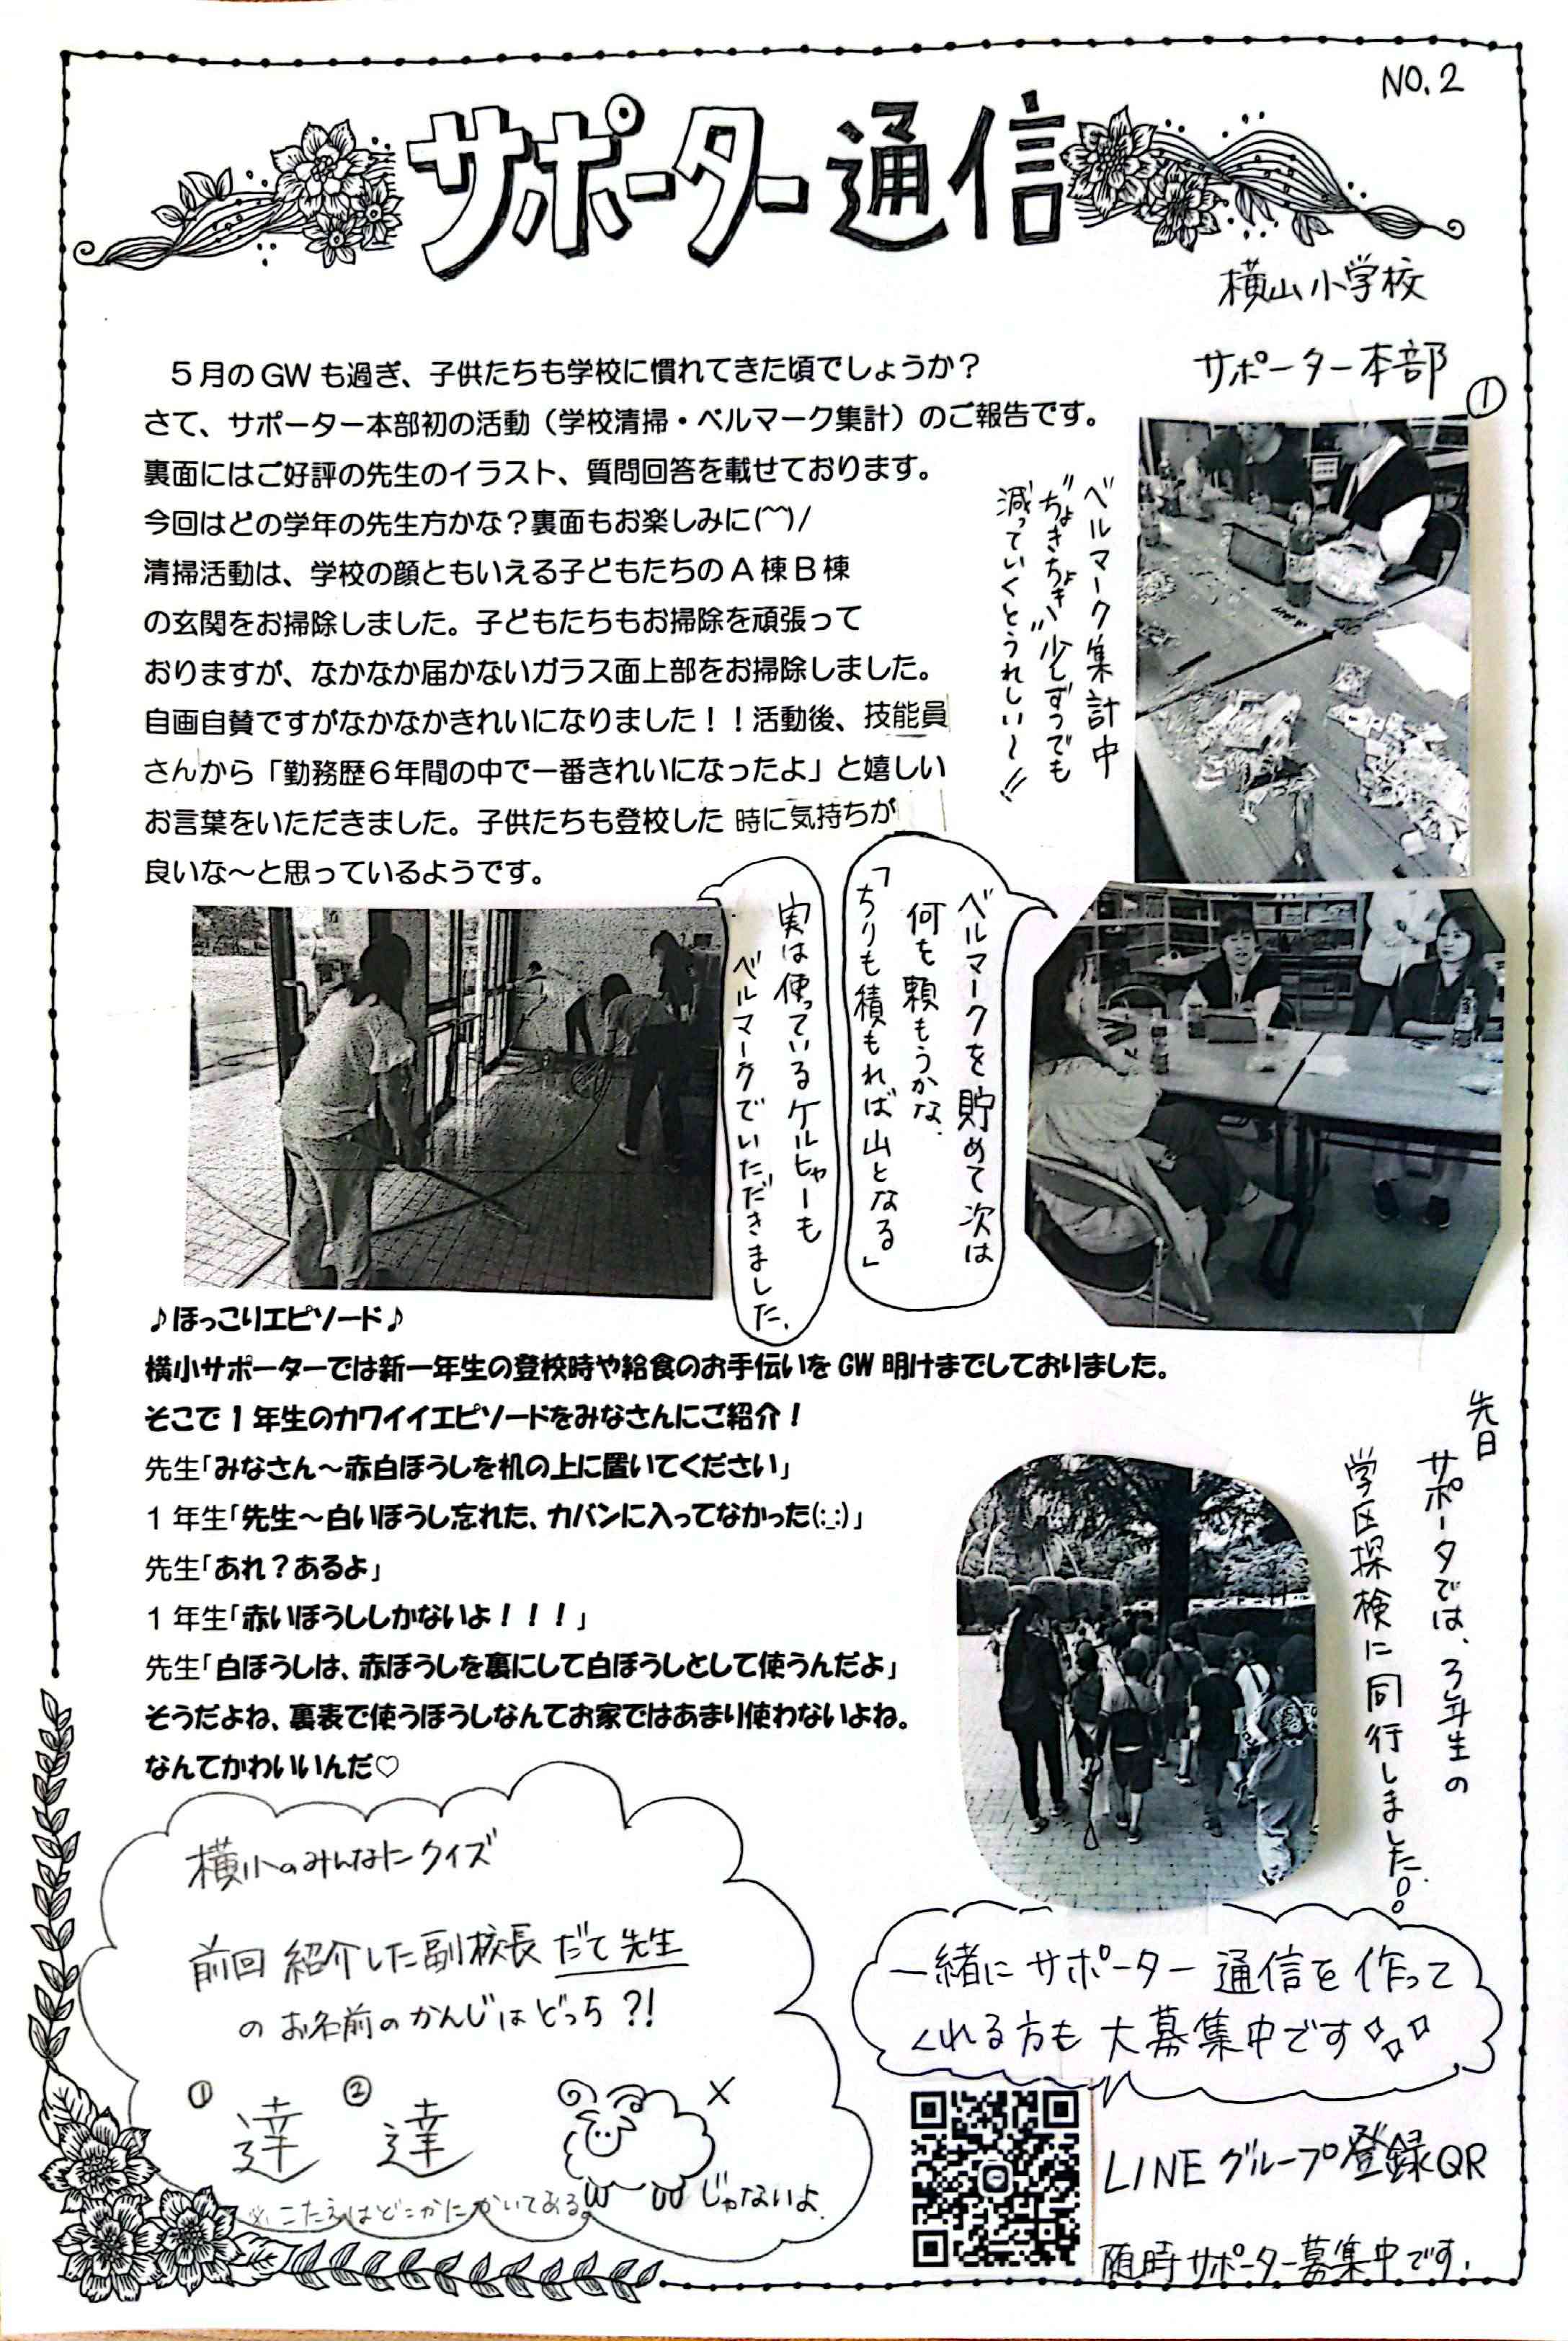 NO.2
サポーター通信
横山小学校
サポーター本部
①
５月のGWも過ぎ、子供たちも学校に慣れてきた頃でしょうか？
さて、サポーター本部初の活動（学校清掃・ベルマーク集計）のご報告です。
裏面にはご好評の先生のイラスト、質問回答を載せております。
今回はどの学年の先生方かな？裏面もお楽しみに(^^)/
清掃活動は、学校の顔ともいえる子どもたちのＡ棟Ｂ棟
の玄関をお掃除しました。子どもたちもお掃除を頑張って
おりますが、なかなか届かないガラス面上部をお掃除しました。
自画自賛ですがなかなかきれいになりました！！活動後、技能員
さんから「勤務歴６年間の中で一番きれいになったよ」と嬉しい
お言葉をいただきました。子供たちも登校した 時に気持ちが
良いな～と思っているようです。
ベルマーク集計中
"ちょきちょき"少しずつでも
減っていくとうれしい～!!
ベルマークを貯めて次は
何を頼もうかな.
「ちりも積もれば山となる」
実は使っているケルヒャーも
ベルマークでいただきました.
♪ほっこりエピソード♪
横小サポーターでは新一年生の登校時や給食のお手伝いをGW明けまでしておりました。
そこで１年生のカワイイエピソードをみなさんにご紹介！
先生「みなさん～赤白ぼうしを机の上に置いてください」
１年生「先生～白いぼうし忘れた、カバンに入ってなかった(;_;)」
先生「あれ？あるよ」
１年生「赤いぼうししかないよ！！！」
先生「白ぼうしは、赤ぼうしを裏にして白ぼうしとして使うんだよ」
そうだよね、裏表で使うぼうしなんてお家ではあまり使わないよね。
なんてかわいいんだ♡
先日
サポータでは、3年生の
学区探検に同行しました!!
横小のみんなにクイズ
前回 紹介した副校長 だて先生
の お名前の かんじは どっち ?!
① 達 ② 達 ×
じゃないよ.
※こたえはどこかにかいてある。
一緒に サポーター 通信を 作って
くれる方も 大募集中です
LINEグループ登録QR
随時サポーター募集中です.